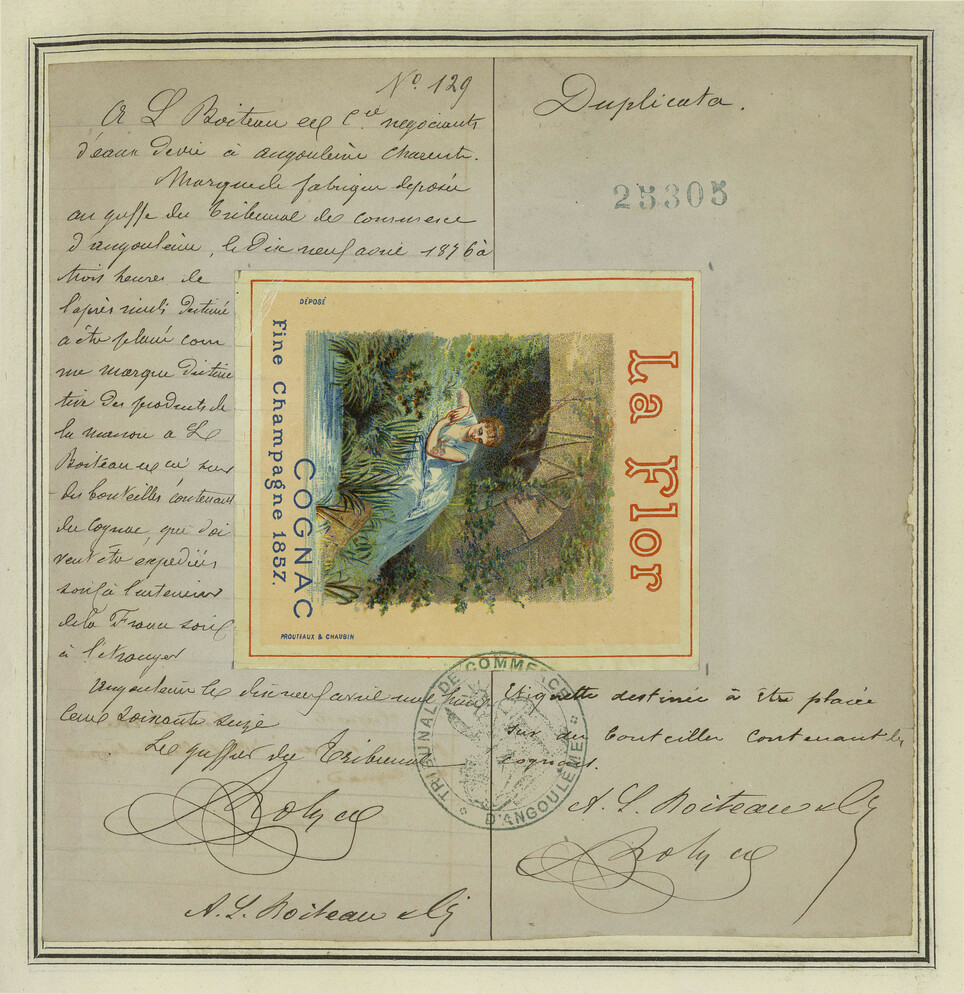 No. 129
A L Boiteau et Cie négociants
d'eaux de vie à angoulême Charente.
Marque de fabrique déposée
au greffe du Tribunal de commerce
d'angoulême, le dix neuf avril 1876 à
trois heures de
l'après midi destiné
a être placée com
me marque distinc
tive des produits de
la maison A L
Boiteau et Cie sur
des bouteilles contenant
du Cognac, qui doi
vent être expediés
soit à l'interieur
de la France soit
à l'étranger
Angoulême le dix neuf avril mil huit
cent soixante seize
Le greffier du Tribunal
A. L. Boiteau & Cie
Duplicata.
25305
DÉPOSÉ
La Flor
COGNAC
Fine Champagne 1857.
PROUTEAUX & CHAUBIN
TRIBUNAL DE COMMERCE
D'ANGOULEME
Etiquette destinée à être placée
sur des bouteilles contenant le
cognac.
A. L. Boiteau & Cie